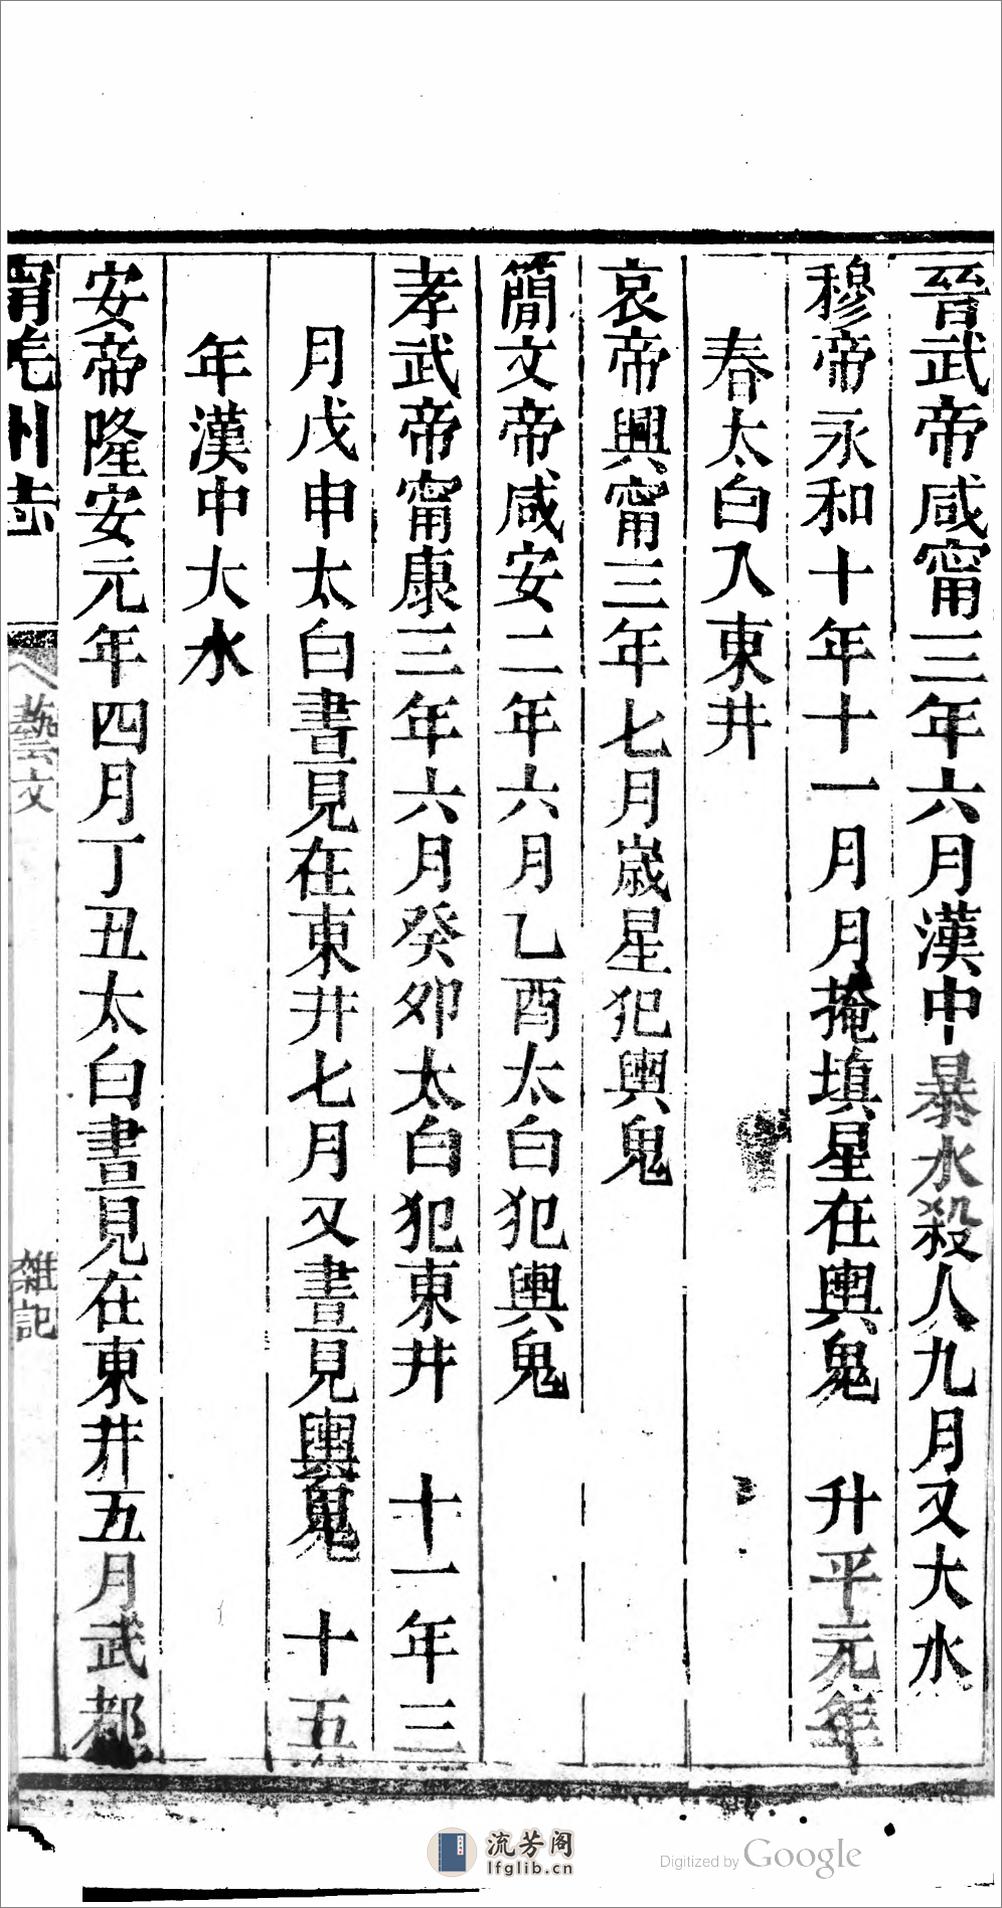 晉武帝咸甯三年六月漢中暴水殺人九月又大水
穆帝永和十年十一月月掩填星在輿鬼　升平元年
春太白入東井
哀帝興甯三年七月歲星犯輿鬼
簡文帝咸安二年六月乙酉太白犯輿鬼
孝武帝甯康三年六月癸卯太白犯東井　十一年三
月戊申太白晝見在東井七月又晝見輿鬼　十五
年漢中大水
安帝隆安元年四月丁丑太白晝見在東井五月武都
甯羌州志
藝文
雜記
流芳阁
lfglib.cn
Digitized by Google